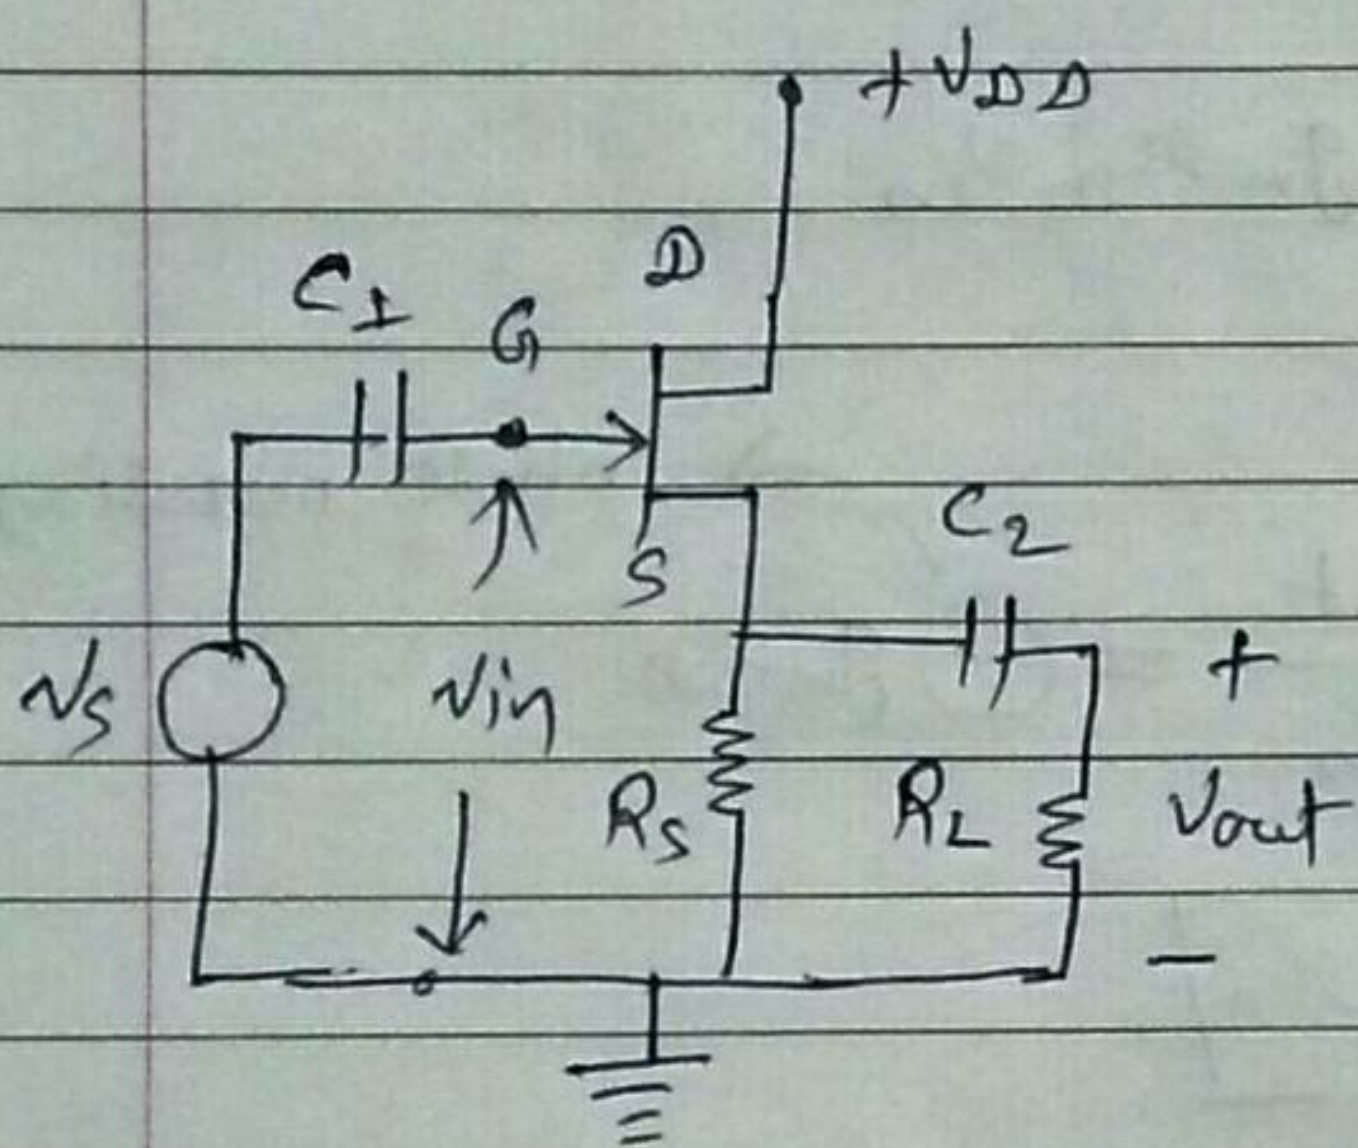 +VDD
D
C1
G
S
C2
Vs
Vin
+
RS
RL
Vout
−